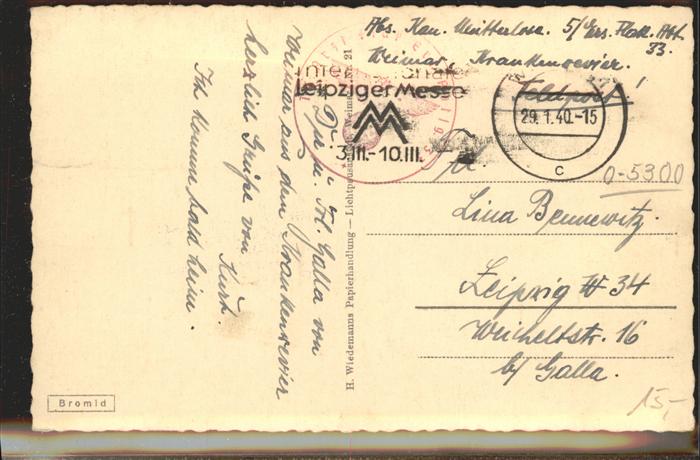 Abs. Kan. Mitterlose. 5/Ers. Flak. Abt.
33.
Weimar, Krankenrevier.
Internationale
Leipziger Messe
3.III.-10.III.
Feldpost!
29.1.40.-15
c
0-5300
Lina Bennewitz.
Leipzig W 34
Weicheltstr. 16
b/ Galla.
15,-
H. Wiedemanns Papierhandlung — Lichtpausanstalt Weimar 21
Dir u. Fr. Galla von
Weimar aus dem Krankenrevier
herzlich Grüße von
Kurt.
Ich komme bald heim.
Bromid